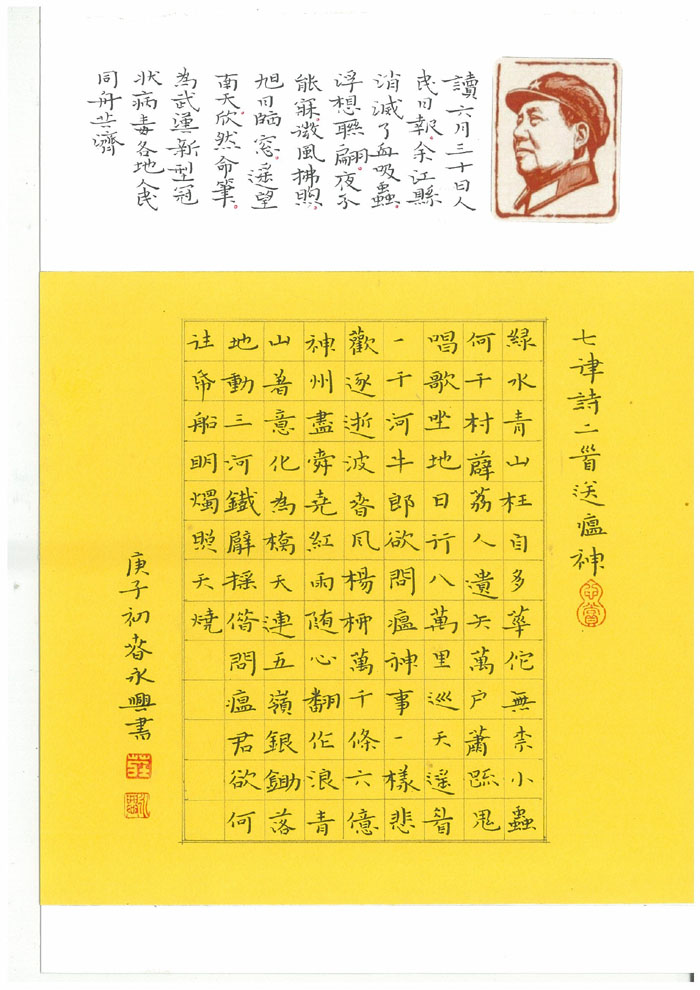 讀六月三十日人
民日報。余江縣
消滅了血吸蟲。
浮想聯翩。夜不
能寐。微風拂煦。
旭日臨窓。遥望
南天。欣然命筆。
為武漢新型冠
狀病毒各地人民
同舟共濟
七律詩二首送瘟神
綠水青山枉自多華佗無柰小蟲
何千村薜荔人遺矢萬户蕭疏鬼
唱歌坐地日行八萬里巡天遥看
一千河牛郎欲問瘟神事一樣悲
歡逐逝波春風楊柳萬千條六億
神州盡舜堯紅雨随心翻作浪青
山着意化為橋天連五嶺銀鋤落
地動三河鐵臂摇借問瘟君欲何
往帋船明燭照天燒
庚子初春永興書